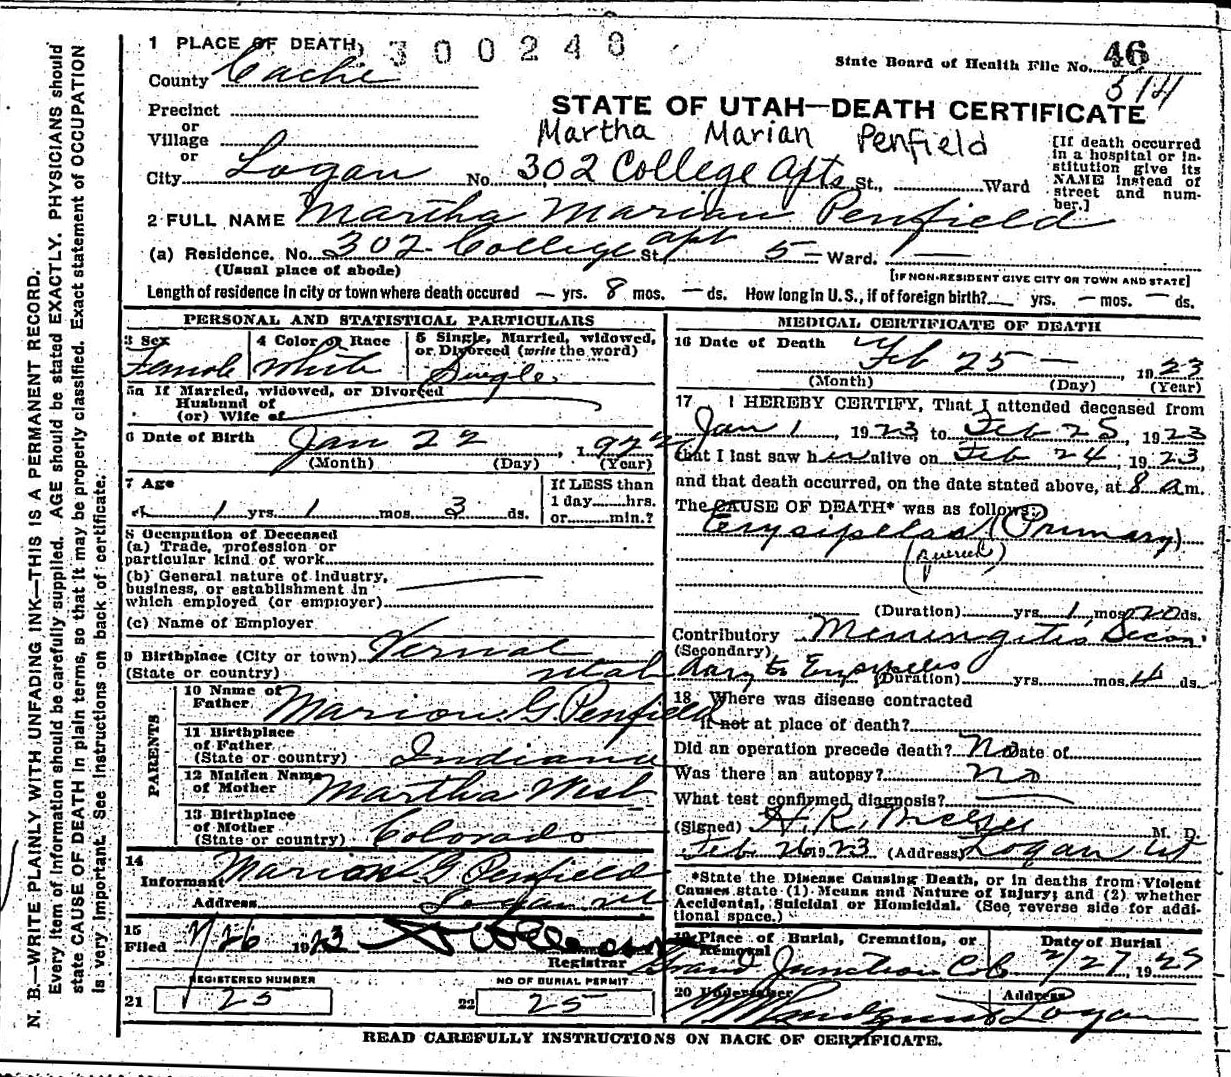 1 PLACE OF DEATH
2300248
State Board of Health File No. 46
514
County Cache
STATE OF UTAH—DEATH CERTIFICATE
Precinct
or
Village
or
Martha Marian Penfield
City Logan No. 302 College Apts St., Ward
[If death occurred in a hospital or in-
stitution give its
NAME instead of
street and num-
ber.]
2 FULL NAME Martha Marian Penfield
(a) Residence. No. 302 College apt St. 5 — Ward.
(Usual place of abode)
[IF NON-RESIDENT GIVE CITY OR TOWN AND STATE]
Length of residence in city or town where death occured — yrs. 8 mos. — ds. How long in U.S., if of foreign birth? — yrs. — mos. — ds.
PERSONAL AND STATISTICAL PARTICULARS
3 Sex Female
4 Color or Race White
5 Single, Married, widowed,
or Divorced (write the word)
Single
5a If Married, widowed, or Divorced
Husband of
(or) Wife of
6 Date of Birth Jan 22, 1922
(Month) (Day) (Year)
7 Age
1 yrs. 1 mos. 3 ds.
If LESS than
1 day hrs.
or min.?
8 Occupation of Deceased
(a) Trade, profession or
particular kind of work
(b) General nature of industry,
business, or establishment in
which employed (or employer)
(c) Name of Employer
9 Birthplace (City or town) Vernal
(State or country) Utah
PARENTS
10 Name of
Father Marion G. Penfield
11 Birthplace
of Father
(State or country) Indiana
12 Maiden Name
of Mother Martha West
13 Birthplace of
Mother
(State or country) Colorado
14
Informant Marion G Penfield
Address Logan Ut
15
Filed 2/26 1923
Registrar
REGISTERED NUMBER
21 25
NO OF BURIAL PERMIT
22 25
MEDICAL CERTIFICATE OF DEATH
16 Date of Death Feb 25 — 1923
(Month) (Day) (Year)
17 I HEREBY CERTIFY, That I attended deceased from
Jan 1, 1923 to Feb 25, 1923
that I last saw her alive on Feb 24, 1923
and that death occurred, on the date stated above, at 8 a m.
The CAUSE OF DEATH* was as follows:
Erysipelas (Primary)
(Duration) yrs. 1 mos. 20 ds.
Contributory Meningitis Secon-
(Secondary)
dary to Erysipelas (Duration) yrs. mos. 4 ds.
18 Where was disease contracted
if not at place of death?
Did an operation precede death? No Date of
Was there an autopsy? no
What test confirmed diagnosis?
(Signed) H. R. M. D.
Feb 26 1923 (Address) Logan Ut
*State the Disease Causing Death, or in deaths from Violent
Causes, state (1) Means and Nature of Injury; and (2) whether
Accidental, Suicidal or Homicidal. (See reverse side for addi-
tional space.)
19 Place of Burial, Cremation, or
Removal
Date of Burial
Grand Junction Colo 2/27, 19
20 Undertaker
Address
Logan
READ CAREFULLY INSTRUCTIONS ON BACK OF CERTIFICATE.
N. B.—WRITE PLAINLY WITH UNFADING INK—THIS IS A PERMANENT RECORD.
Every item of information should be carefully supplied. AGE should be stated EXACTLY. PHYSICIANS should
state CAUSE OF DEATH in plain terms, so that it may be properly classified. Exact statement of OCCUPATION
is very important. See instructions on back of certificate.